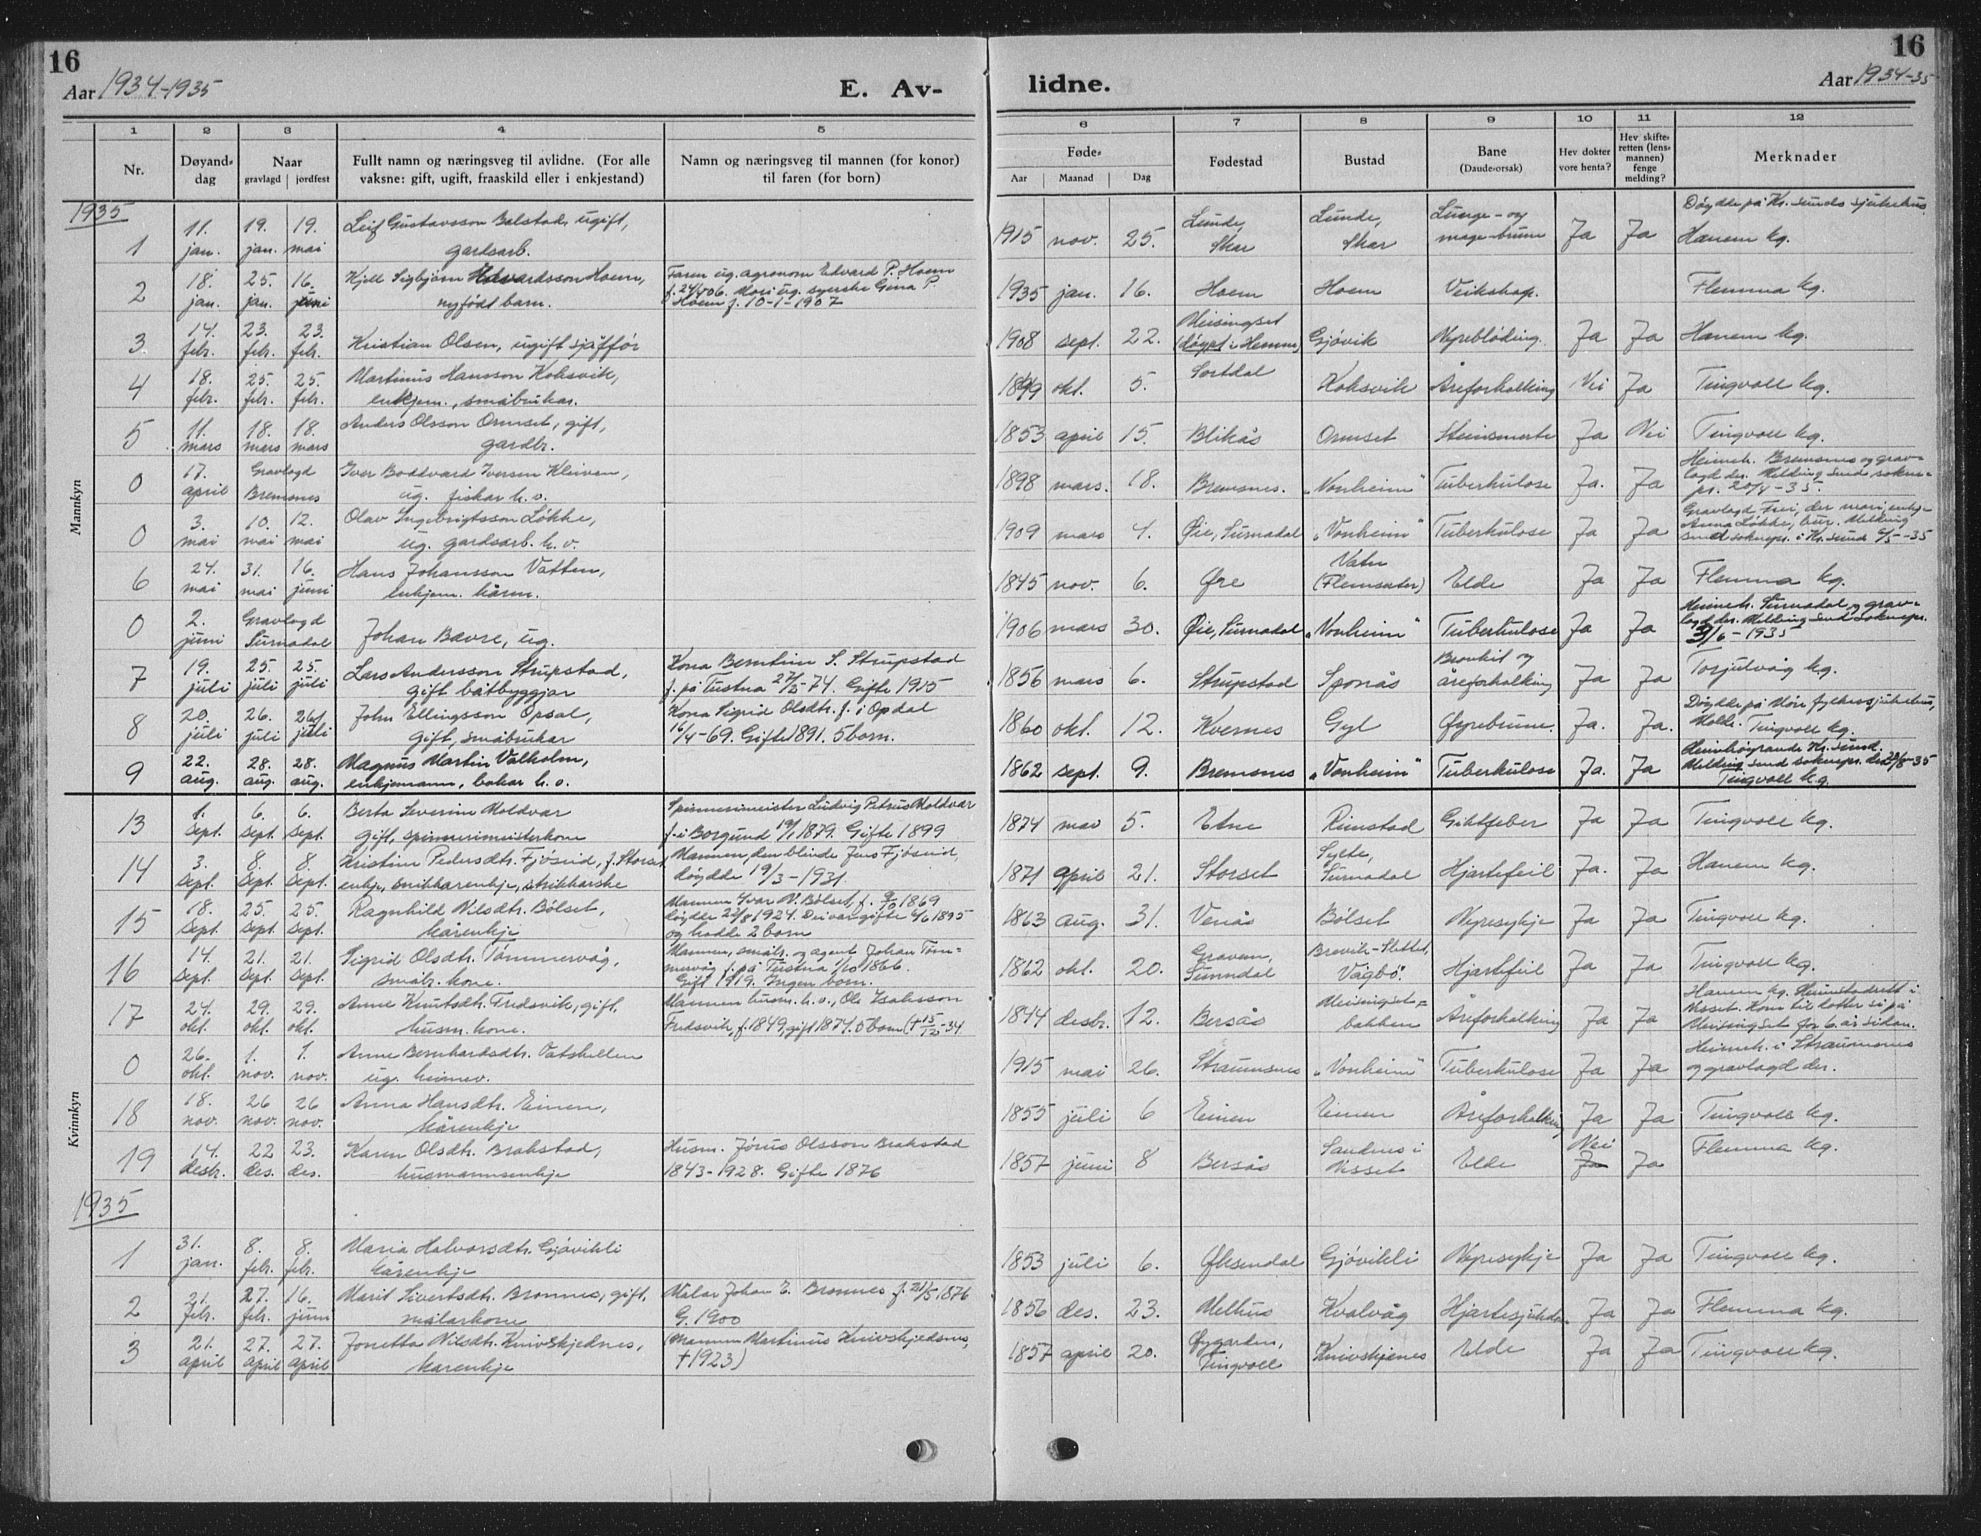 16
Aar 1934-1935
E. Av-
lidne.
16
Aar 1934-35
1 2 3 4 5
6 7 8 9 10 11 12
Nr.
Døyand-dag
Naar
gravlagd | jordfest
Fullt namn og næringsveg til avlidne. (For alle
vaksne: gift, ugift, fraaskild eller i enkjestand)
Namn og næringsveg til mannen (for konor)
til faren (for born)
Føde-
Aar Maanad Dag
Fødestad
Bustad
Bane
(Daude-orsak)
Hev dokter
vore henta?
Hev skifte-
retten (lens-
mannen)
fenge
melding?
Merknader
Mannkyn
1935
1 11. jan. 19. jan. 19. mai Leif Gustavsson Balstad, ugift, gardsarb. 1915 nov. 25. Lunde, Skar Lunde, Skar Lunge- og Ja Ja Døydde på Kr. sunds sjukehus. Hanem kg.
2 18. jan. 25. jan. 16. juni Kjell Sigbjørn Hoem, nyfødt barn. Faren ug. agronom Edvard P. Hoem Mori ug. syerske Gina P. Hoem f. 10-1-1907 1935 jan. 16. Hoem Hoem Veikskap. Flemma kg.
3 14. febr. 23. febr. 23. febr. Kristian Olsen, ugift sjåffør 1908 sept. 22. Meisingset Gjøvik Nyrebløding. Ja Ja Hanem kg.
4 18. febr. 25. febr. 25. febr. Martinus Hansson Koksvik, enkjem., småbrukar. okt. 5. Koksvik Åreforkalking Nei Ja Tingvoll kg.
5 11. mars 18. mars 18. mars Anders Olsson Ormset, gift, gardbr. 1853 april 15. Blikås Ormset Steinsmerte Ja Nei Tingvoll kg.
0 17. april Gravlagd Bremsnes Iver Boddvard Iversen Kleiven, ug. fiskar h. o. 1898 mars. 18. Bremsnes. "Vonheim" Tuberkulose Ja. Ja Heimeh. Bremsnes og grav-lagd der. Melding send sokne-pr. 20/4-35.
0 3. mai 10. mai 12. mai Olav Ingebrigtsson Løkke, ug. gardsarb. h. o. 1909 mars 4. Øie, Surnadal "Vonheim" Tuberkulose Ja Ja Gravlagd Frei, der mori, enkje Anna Løkke, bur. Melding send soknepr. i Kr. sund 6/5-35
6 24. mai 31. mai 16. juni Hans Johansson Vatten, enkjem. kårm. 1845 nov. 6. Øre Vatn (Flemsæter) Elde Ja Ja Flemma kg.
0 2. juni Gravlagd Surnadal Johan Bævre, ug. 1906 mars 30. Øie, Surnadal "Vonheim" Tuberkulose Ja Ja Heimeh. Surnadal og grav-lagd der. Melding send soknepr. 3/6-1935
7 19. juli 25 juli 25. juli Lars Andersson Strupstad, gift båtbyggjar Kona Berntine S. Strupstad f. på Tustna 27/2-74. Gifte 1915 1856 mars 6. Strupstad Sponås Bronkit og åreforkalking Ja Ja Torjulvåg kg.
8 20. juli 26. juli 26. juli John Ellingsson Opsal, gift, småbrukar Kona Sigrid Olsdtr. f. i Opdal 16/4-69. Gifte 1891. 5 born. 1860 okt. 12. Kvernes Gyl Ja. Ja. Døydde på Møre fylkessjukehus, Molde. Tingvoll kg.
9 22. aug. 28. aug. 28. aug. Magnus Martin Valholm, enkjemann, bakar h. o. 1862 sept. 9. Bremsnes "Vonheim" Tuberkulose Ja. Ja Heimhøyrande Kr. sund. Melding send soknepr. der 29/8-35 Tingvoll kg.
Kvinnkyn
13 1. sept. 6. sept. 6. sept. Berta Severine Moldvær gift, spinnerimeisterkone Spinnerimeister Ludvig Petrus Moldvær f. i Borgund 19/1 1879. Gifte 1899 1874 mai 5. Etne Rimstad Giktfeber Ja Ja Tingvoll kg.
14 3. sept. 8. sept. 8. sept. Kristine Pedersdtr. Fjøseid, f. Storset enkje, snikkarenkje, strikkarske Mannen, den blinde Jens Fjøseid, døydde 19/3-1931. 1871 april 21. Storset Sylte, Surnadal Hjartefeil Ja. Ja Hanem kg.
15 18. sept. 25. sept. 25. sept. Ragnhild Nilsdtr. Bølset, kårenkje Mannen Ivar N. Bølset f. 1869 døydde 22/8 1924. Dei var gifte 6/6 1895 og hadde 2 born 1863 aug. 31. Venås Bølset Nyresykje Ja Ja Tingvoll kg.
16 14. sept. 21. sept. 21. sept. Sigrid Olsdtr. Tømmervåg, småbr. kone. Mannen, småbr. og agent Johan Tøm-mervåg f. på Tustna 1/10 1866. Gift 1919. Ingen born. 1862 okt. 20. Graven, Sunndal Brevik-Slettet, Vågbø. Hjartefeil Ja Ja Tingvoll kg.
17 24. okt. 29. okt. 29. okt. Anne Knutsdtr. Fredsvik, gift. husm. kone. Mannen husm. h. o., Ole Isaksson Fredsvik, f. 1849, gift 1874. 5 born († 15/12-34 1844 desbr. 12. Bersås Meisingset-bakken Åreforkalking Ja Ja Hanem kg. Heimstadrett i Nesset. Kom til dotter si på Meisingset for 6 år sidan.
0 26. okt. 1. nov. 1. nov. Anne Bernhardsdtr. Vatshellen ug. heimev. 1915 mai 26. Straumsnes "Vonheim" Tuberkulose Ja Ja Heimeh. i Straumsnes og gravlagd der.
18 18. nov. 26 nov. 26 nov. Anna Hansdtr. Einen, kårenkje 1855 juli 6 Einen Einen Åreforkalking Ja Ja Tingvoll kg.
19 14. desbr. 22 des. 23. des. Karen Olsdtr. Brakstad, husmannsenkje Husm. Jørus Olsson Brakstad 1843-1928. Gifte 1876 1857 juni 8 Bersås Sandnes i Nesset Elde Nei Ja Ja Flemma kg.
1935
1 31. jan. 8. febr. 8. febr. Maria Halvorsdtr. Gjøvikli kårenkje 1853 juli 6. Øksendal Gjøvikli Nyresykje Ja Ja Tingvoll kg.
2 21. febr. 27. febr. 16. juni Marit Sivertsdtr. Bronnes, gift. målarkone Målar Johan E. Bronnes f. 21/5 1876 G. 1900 1856 des. 23. Melhus Kvalvåg Ja Ja Flemma kg.
3 21. april 27. april 27. april Jonetta Nilsdtr. Knivskjednes, kårenkje (Mannen Martinus Knivskjednes, †1923) 1857 april 20. Øygarden, Tingvoll Knivskjenes Elde Ja Ja Tingvoll kg.